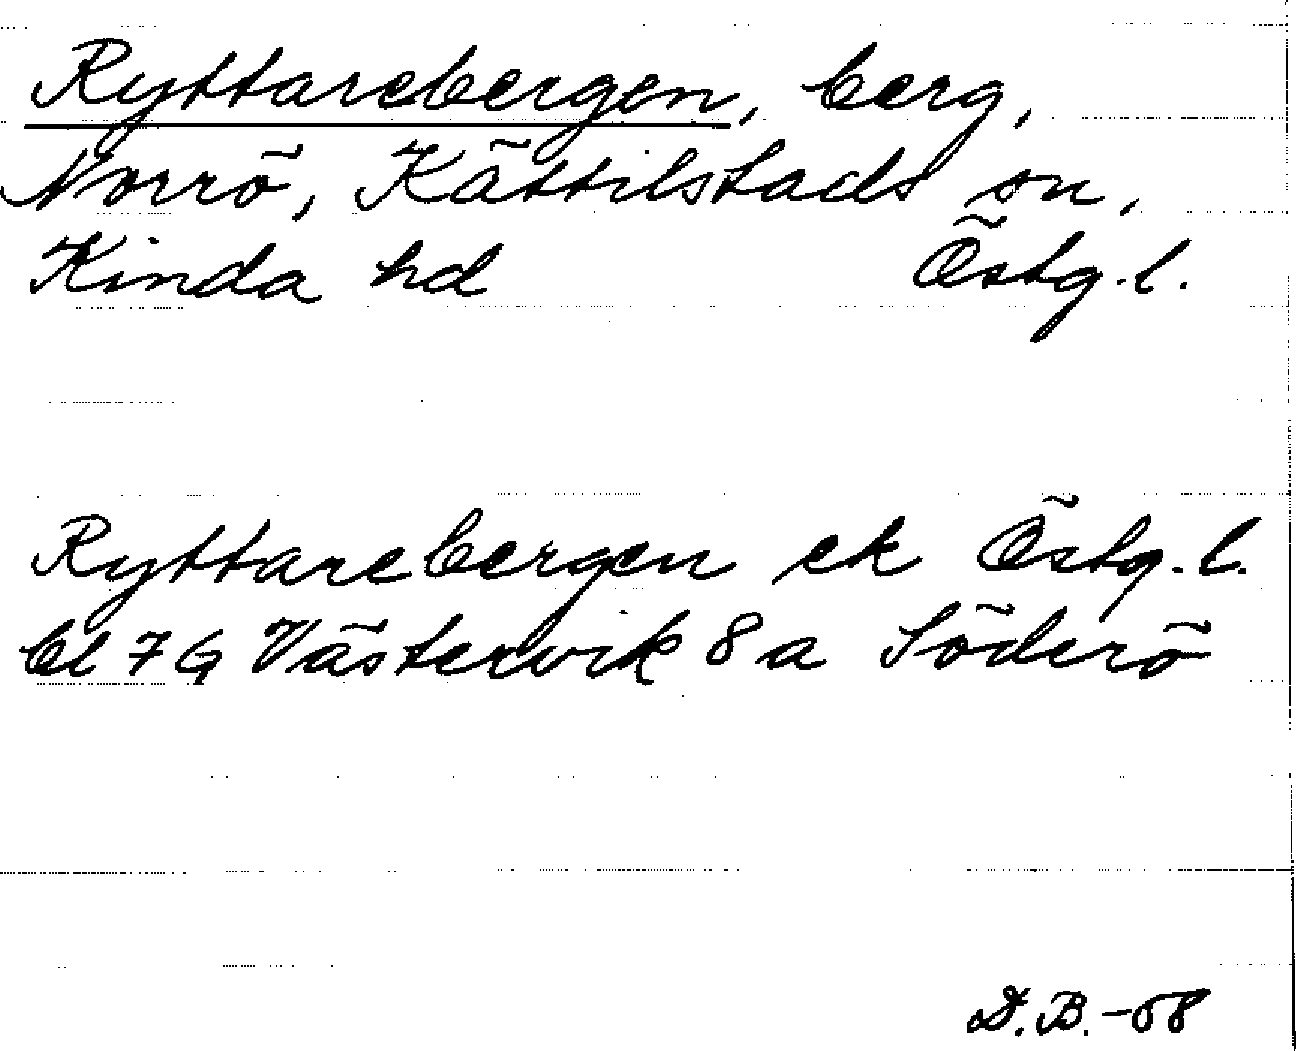 Ryttarebergen, berg,
Norrö, Kättilstads sn,
Kinda hd Östg.l.
Ryttarebergen ek Östg.l.
bl 7 G Västervik 8 a Söderö
D.B.-68